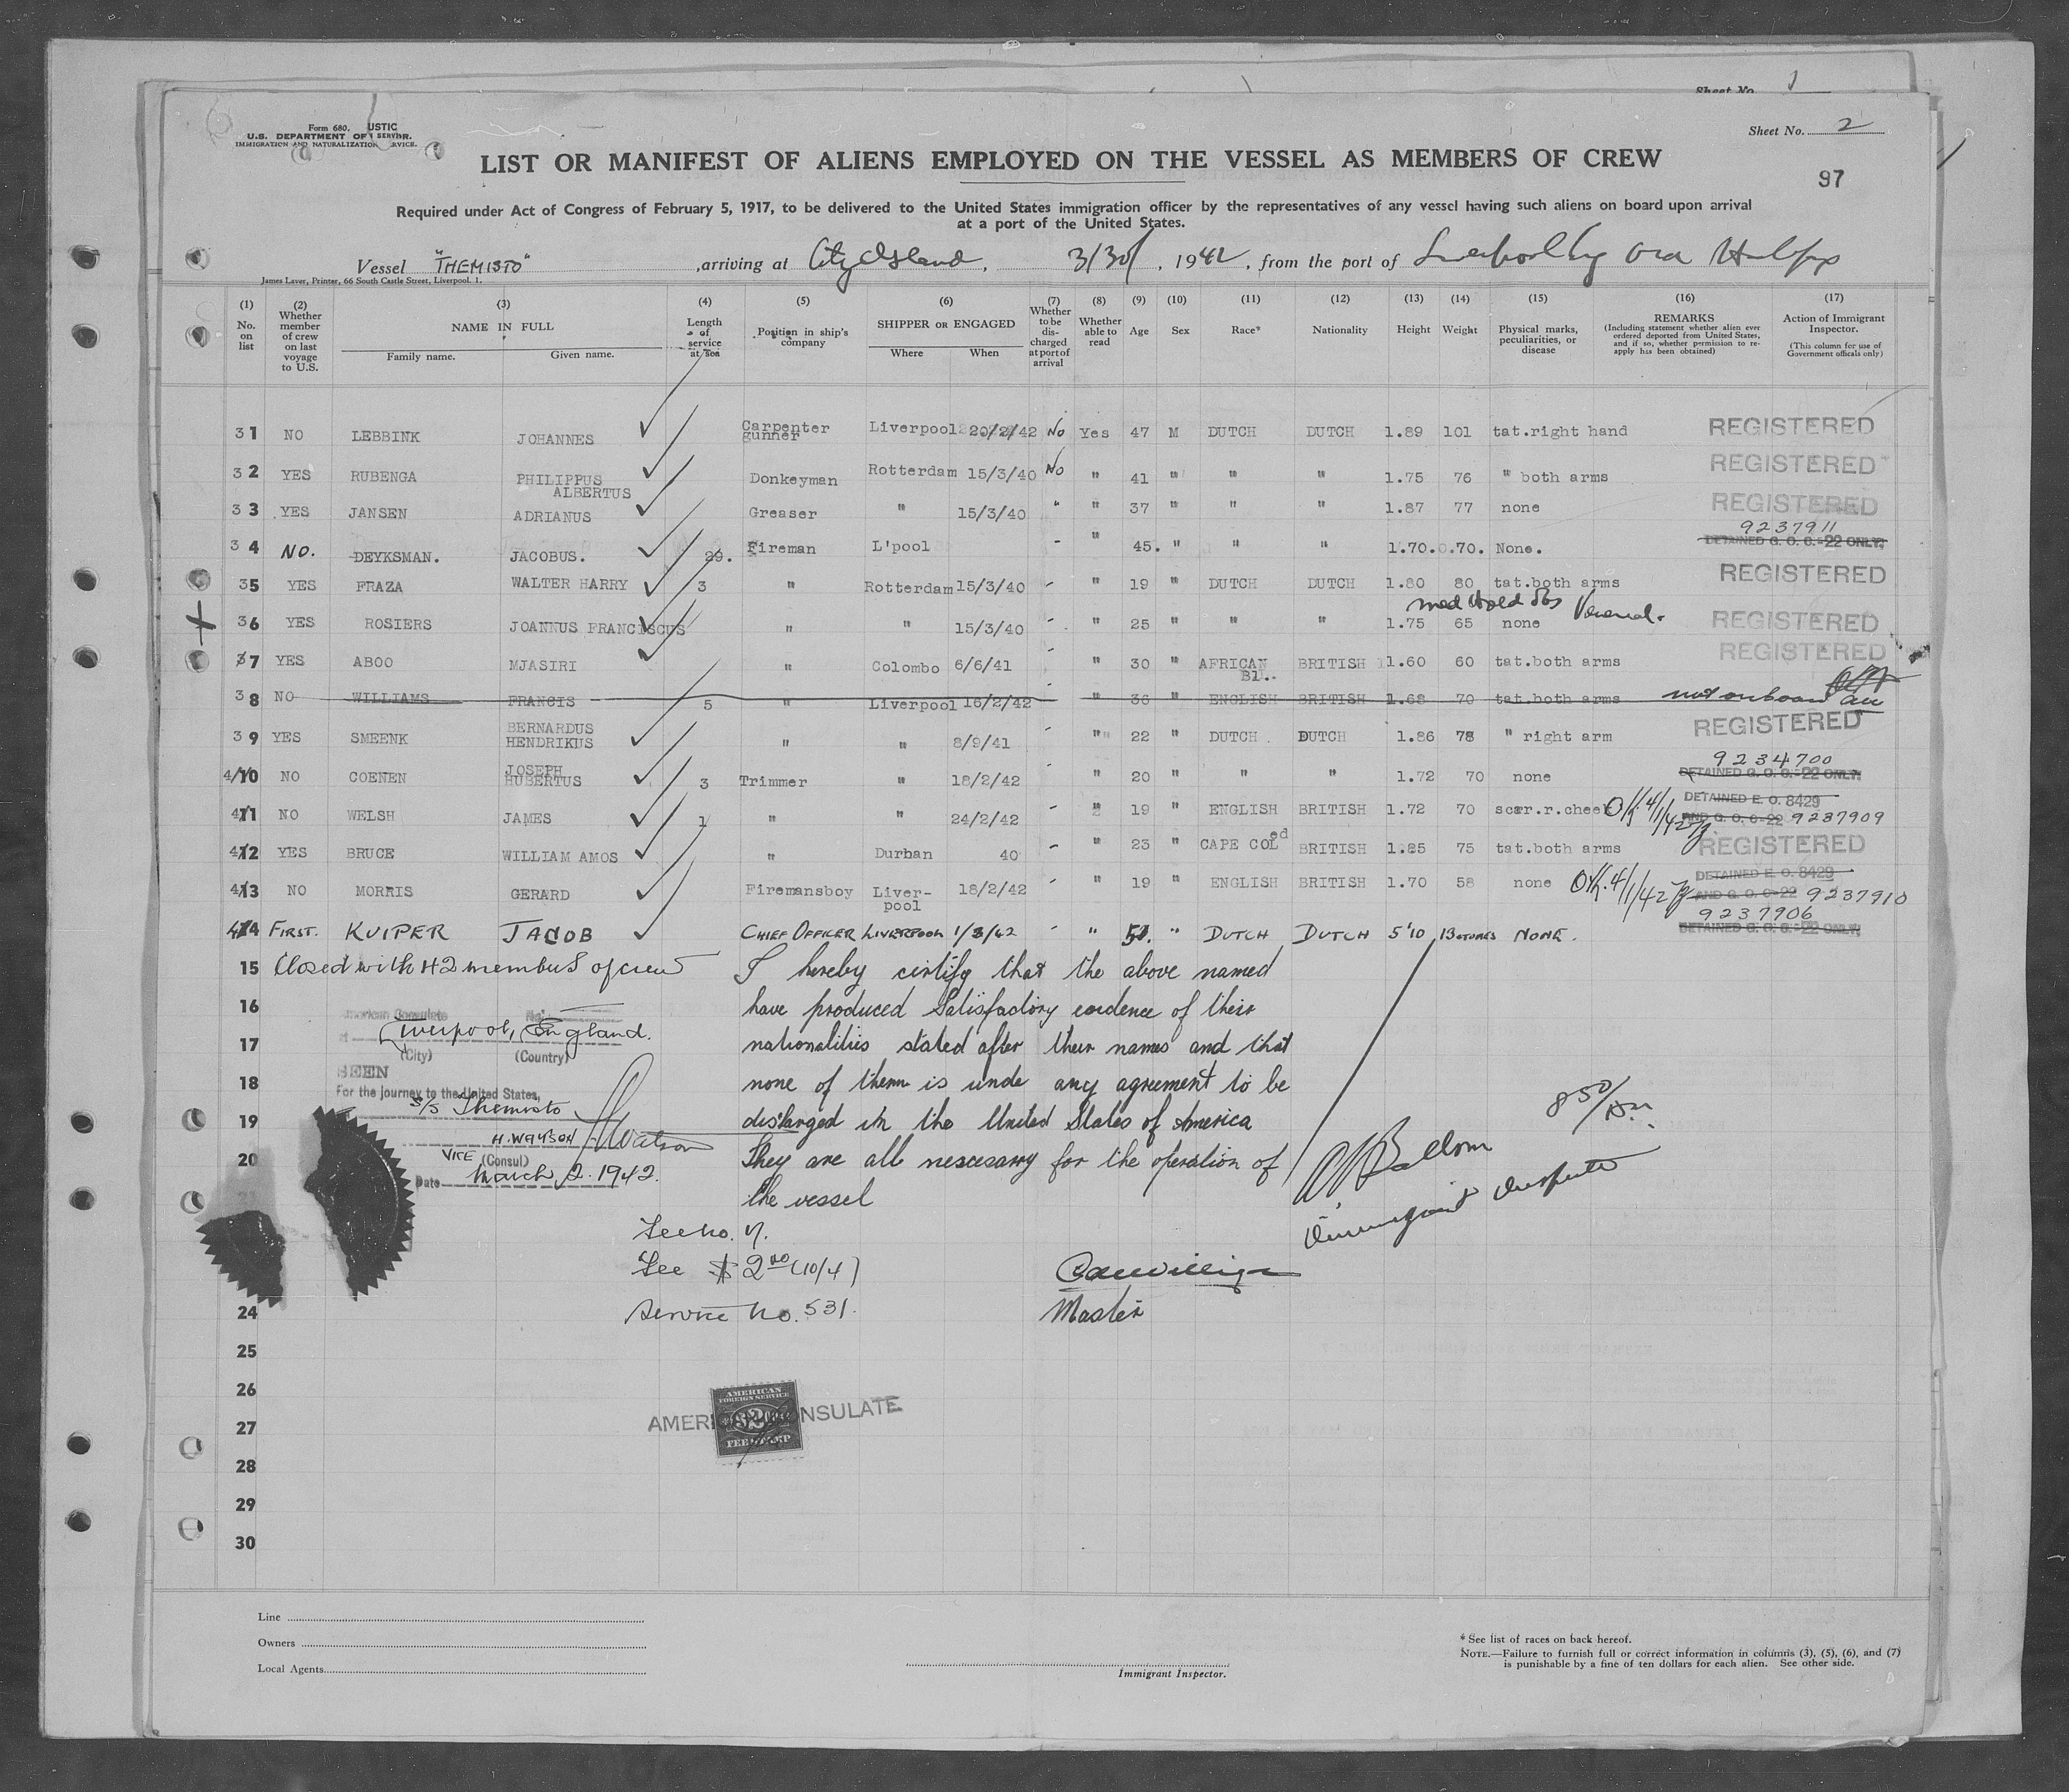 Sheet No. 1
Form 680.
U.S. DEPARTMENT OF JUSTIC
IMMIGRATION AND NATURALIZATION SERVICE.
Sheet No. 2
LIST OR MANIFEST OF ALIENS EMPLOYED ON THE VESSEL AS MEMBERS OF CREW
97
Required under Act of Congress of February 5, 1917, to be delivered to the United States immigration officer by the representatives of any vessel having such aliens on board upon arrival
at a port of the United States.
Vessel "THEMISTO" , arriving at City Island , 3/30 , 1942 , from the port of Liverpool Eng via Halifax
James Laver, Printer, 66 South Castle Street, Liverpool. 1.
(1) No. on list (2) Whether member of crew on last voyage to U.S. (3) NAME IN FULL Family name. Given name. (4) Length of service at sea (5) Position in ship's company (6) SHIPPER OR ENGAGED Where When (7) Whether to be discharged at port of arrival (8) Whether able to read (9) Age (10) Sex (11) Race* (12) Nationality (13) Height (14) Weight (15) Physical marks, peculiarities, or disease (16) REMARKS (Including statement whether alien ever ordered deported from United States, and if so, whether permission to reapply has been obtained) (17) Action of Immigrant Inspector. (This column for use of Government officials only)
31 NO LEBBINK JOHANNES Carpenter gunner Liverpool 20/2/42 No Yes 47 M DUTCH DUTCH 1.89 101 tat.right hand REGISTERED
32 YES RUBENGA PHILIPPUS ALBERTUS Donkeyman Rotterdam 15/3/40 No " 41 " " " 1.75 76 " both arms REGISTERED
33 YES JANSEN ADRIANUS Greaser " 15/3/40 " " 37 " " " 1.87 77 none REGISTERED
9237911
34 NO. DEYKSMAN. JACOBUS. 29. Fireman L'pool - " 45. " " " 1.70. 70. None. DETAINED G. O. C.-22 ONLY;
35 YES FRAZA WALTER HARRY 3 " Rotterdam 15/3/40 - " 19 " DUTCH DUTCH 1.80 80 tat.both arms REGISTERED
med Hold Obs Venereal.
36 YES ROSIERS JOANNUS FRANCISCUS " " 15/3/40 - " 25 " " " 1.75 65 none REGISTERED
37 YES ABOO MJASIRI " Colombo 6/6/41 - " 30 " AFRICAN Bl.. BRITISH 1.60 60 tat.both arms REGISTERED
38 NO WILLIAMS FRANCIS 5 " Liverpool 16/2/42 " 36 " ENGLISH BRITISH 1.68 70 tat.both arms not on board
39 YES SMEENK BERNARDUS HENDRIKUS " " 8/9/41 - " 22 " DUTCH DUTCH 1.86 78 " right arm REGISTERED
9234700
4/10 NO COENEN JOSEPH HUBERTUS 3 Trimmer " 18/2/42 - " 20 " " " 1.72 70 none DETAINED G. O. C.-22 ONLY;
411 NO WELSH JAMES 1 " " 24/2/42 - " 19 " ENGLISH BRITISH 1.72 70 scar.r.cheek OK 4/1/42 DETAINED E. O. 8429 AND G. O. C-22 9237909
412 YES BRUCE WILLIAM AMOS " Durban 40 - " 23 " CAPE COLed BRITISH 1.85 75 tat.both arms REGISTERED
413 NO MORRIS GERARD Firemansboy Liverpool 18/2/42 - " 19 " ENGLISH BRITISH 1.70 58 none OK. 4/1/42 DETAINED E. O. 8429 AND G. O. C-22 9237910
9237906
414 FIRST. KUIPER JACOB CHIEF OFFICER LIVERPOOL 1/3/42 - " 51. " DUTCH DUTCH 5'10 13 STONES NONE. DETAINED G. O. C.-22 ONLY;
15 Closed with 42 members of crew
I hereby certify that the above named
have produced Satisfactory evidence of their
nationalities stated after their names and that
none of them is unde any agreement to be
discharged in the United States of America
They are all nescesarry for the operation of
the vessel
16 American Consulate
17 Liverpool, England.
(City) (Country)
18 SEEN
For the journey to the United States,
S/S Themisto
19 H. WATSON Watson
20 VICE (Consul)
Date March 2. 1942.
8 50/
Immigrant Inspector
See no. 7.
Fee $ 2.00 (10/4)
Service No. 531.
Master
24
25
26
27
28
29
30
AMERICAN CONSULATE
AMERICAN
FOREIGN SERVICE
FEE STAMP
Line
Owners
Local Agents
Immigrant Inspector.
* See list of races on back hereof.
NOTE.—Failure to furnish full or correct information in columns (3), (5), (6), and (7)
is punishable by a fine of ten dollars for each alien. See other side.